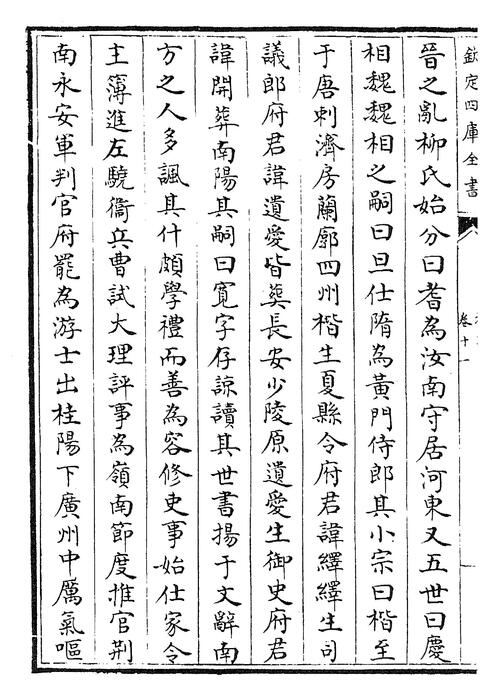 欽定四庫全書
卷十一
晉之亂柳氏始分曰耆為汝南守居河東又五世曰慶
相魏魏相之嗣曰旦仕隋為黃門侍郎其小宗曰楷至
于唐刺濟房蘭廓四州楷生夏縣令府君諱繹繹生司
議郎府君諱遺愛皆葬長安少陵原遺愛生御史府君
諱開葬南陽其嗣曰寛字存諒讀其世書揚于文辭南
方之人多諷其什頗學禮而善為容修史事始仕家令
主簿進左驍衞兵曹試大理評事為嶺南節度推官荆
南永安軍判官府罷為游士出桂陽下廣州中厲氣嘔